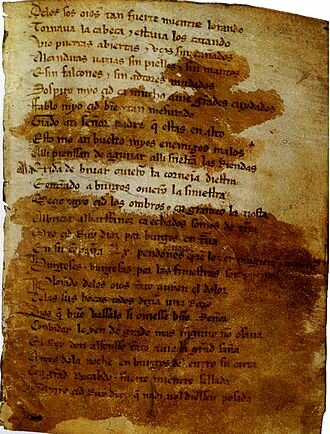 Delos sos oios tan fuerte mientre lorando
Tornaua la cabeça τ estaua los catando
Vio puertas abiertas τ vços sin cañados
Alcandaras uazias sin pielles τ sin mantos
E sin falcones τ sin adtores mudados
Sospiro myo çid ca mucho auie grandes cuydados
Ffablo myo çid bien τ tan mesurado
Grado ati señor padre q estas en alto
Esto me an buelto myos enemigos malos
Alli pienssan de aguiiar alli sueltan las Riendas
exida de biuar ouierō la corneia diestra
entrando a burgos ouierō la siniestra
Meçio myo çid los ombros τ engrameo la tiesta
Albriçia albarffanez ca echados somos de tierra
Myo çid Ruy diaz por burgos entraua
En su conpaña Lx pendones
Burgeses τ burgesas por las finiestras son
Plorando delos oios tāto auyen el dolor
Delas sus bocas todos dizian una Razō
Dios q buē vassalo si ouiesse buē Señor
Conbidar le yen de grado mas ninguno no osaua
El Rey don alfonsso tāto auie la grād saña
Antes dela noche en burgos del entro su carta
Con grād Recabdo τ fuerte mientre sellada
myo çid Ruy diaz q nadi nol diessen posada